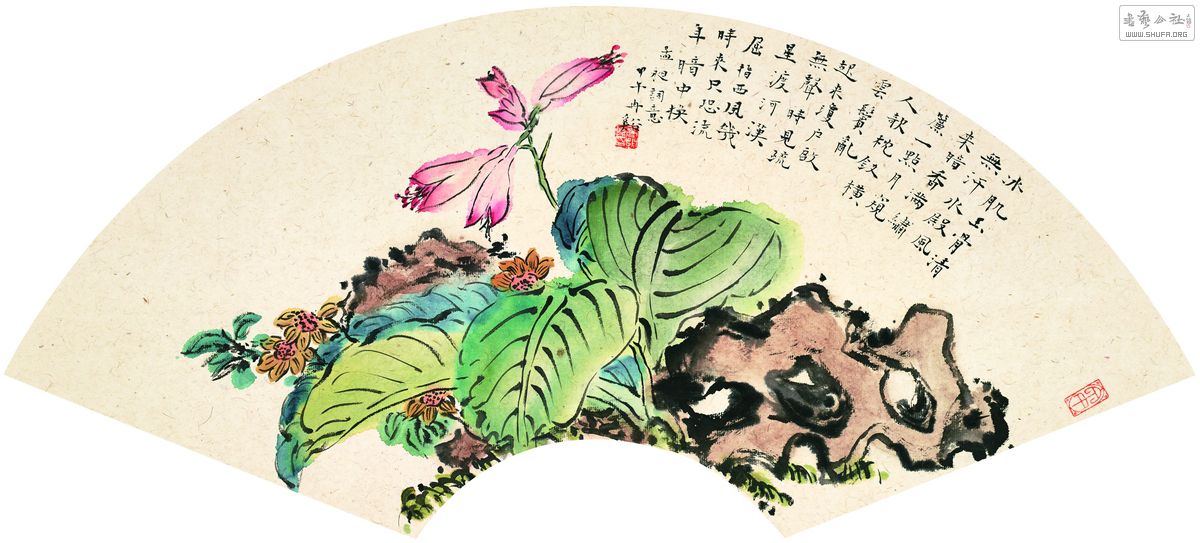 冰肌玉骨清
無汗水殿風
來暗香滿繡
簾一點月窺
人欹枕釵橫
雲鬢亂
起來瓊戶啟
無聲時見疏
星渡河漢
屈指西風幾
時來只恐流
年暗中換
孟昶詞意
甲午丹
書藝公社
WWW.SHUFA.ORG